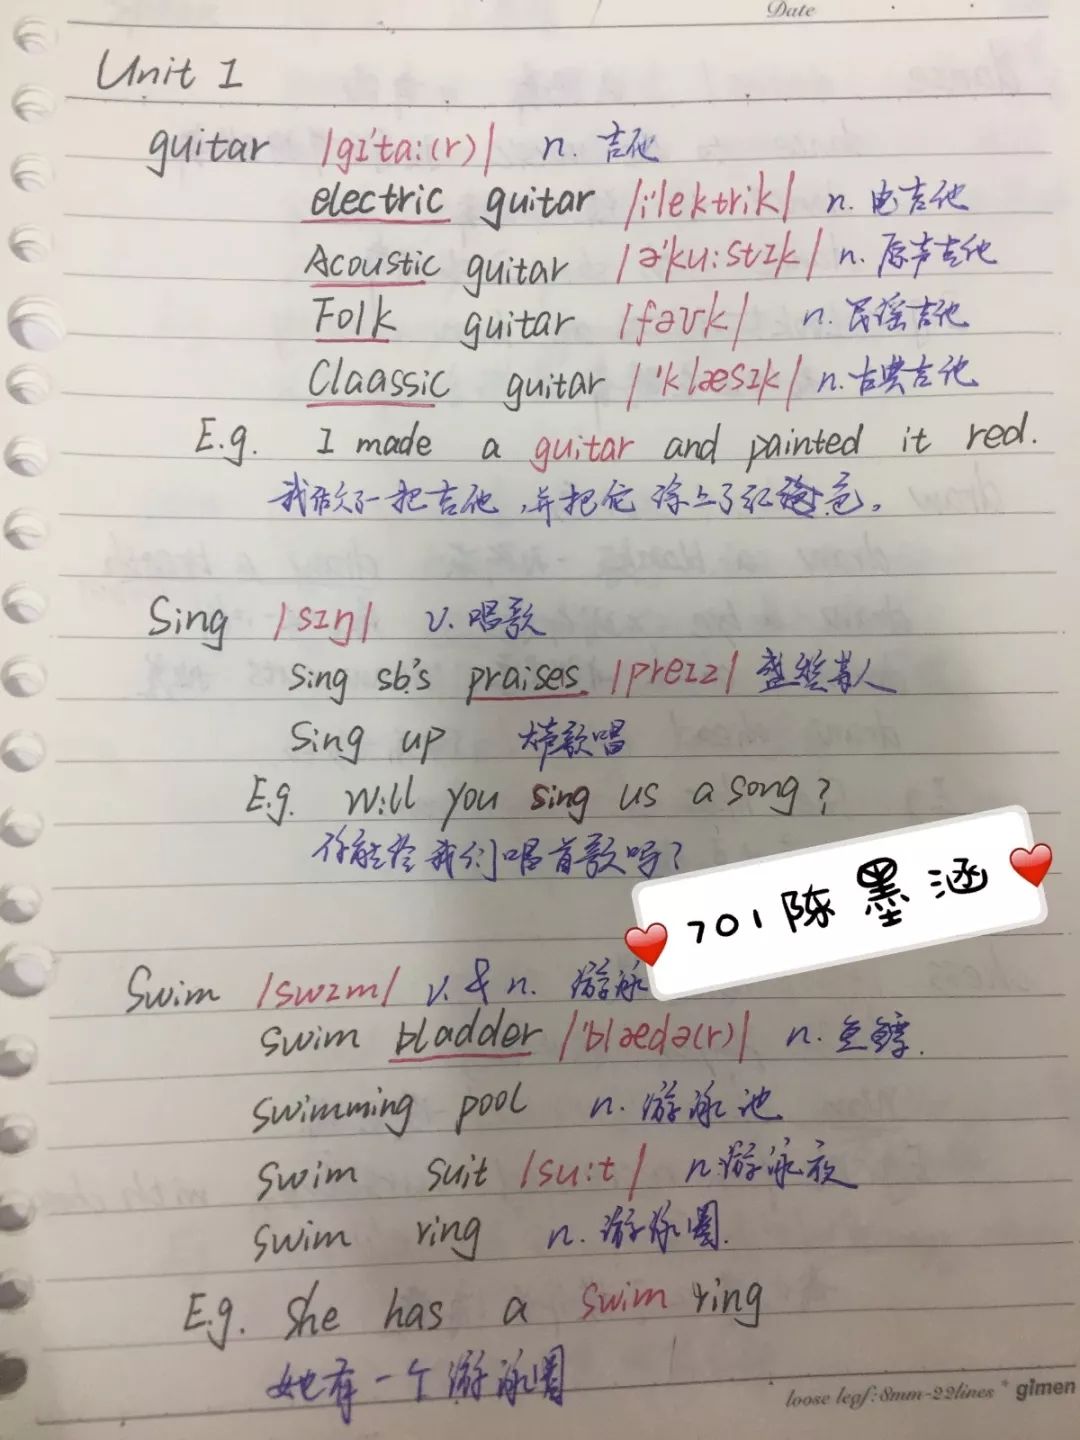 Date
Unit 1
guitar /gɪ'ta:(r)/ n. 吉他
electric guitar /i'lektrik/ n. 电吉他
Acoustic guitar /ə'ku:stɪk/ n. 原声吉他
Folk guitar /fəʊk/ n. 民谣吉他
Claassic guitar /'klæsɪk/ n. 古典吉他
E.g. I made a guitar and painted it red.
我做了一把吉他,并把它涂上了红色。
Sing /sɪŋ/ v. 唱歌
sing sb's praises /preɪz/ 盛赞某人
Sing up 大声歌唱
E.g. Will you sing us a song?
你能给我们唱首歌吗?
701陈墨涵
Swim /swɪm/ v. & n. 游泳
swim bladder /'blædə(r)/ n. 鱼鳔.
swimming pool n. 游泳池
swim suit /su:t/ n. 游泳衣
swim ring n. 游泳圈.
E.g. She has a swim ring
她有一个游泳圈
loose leaf:8mm-22lines * gimen